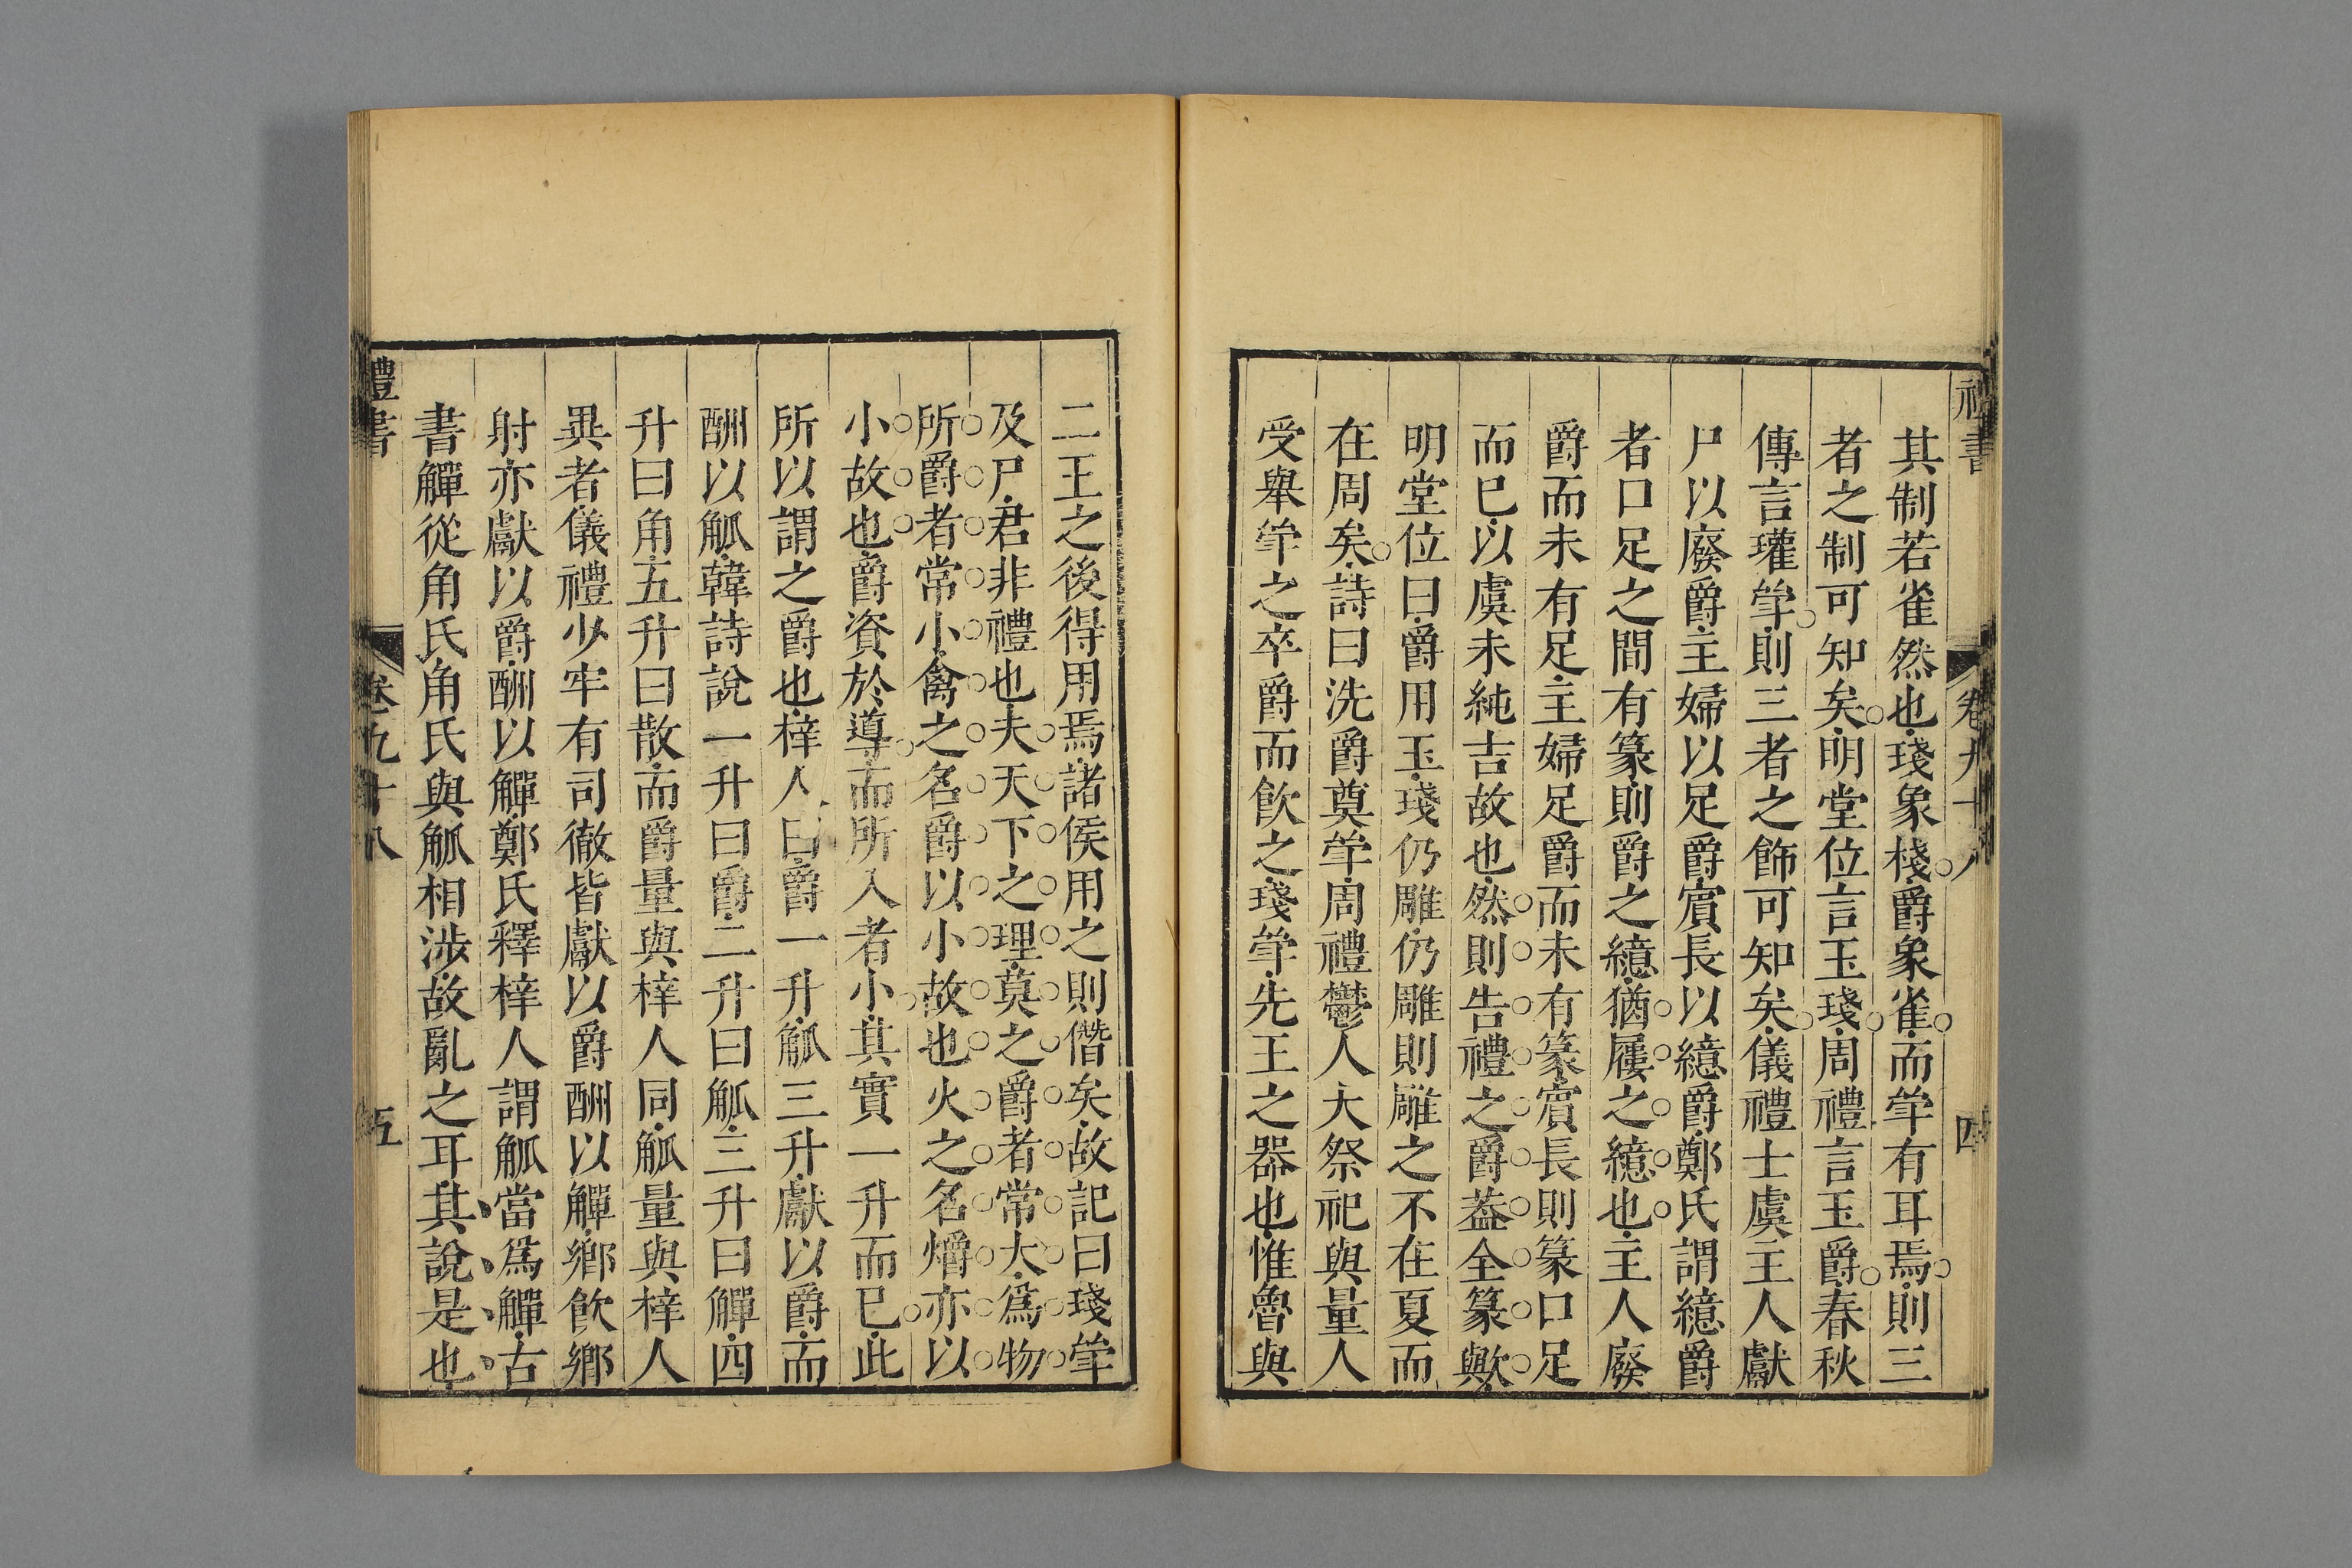 禮書 卷九十八 四
其制若雀然也琖象棧爵象雀而斝有耳焉則三
者之制可知矣明堂位言玉琖周禮言玉爵春秋
傳言瓘斝則三者之飾可知矣儀禮士虞主人獻
尸以廢爵主婦以足爵賔長以繶爵鄭氏謂繶爵
者口足之間有篆則爵之繶猶屨之繶也主人廢
爵而未有足主婦足爵而未有篆賔長則篆口足
而已以虞未純吉故也然則吉禮之爵葢全篆歟
明堂位曰爵用玉琖仍雕仍雕則雕之不在夏而
在周矣詩曰洗爵奠斝周禮鬱人大祭祀與量人
受舉斝之卒爵而飲之琖斝先王之器也惟魯與
二王之後得用焉諸侯用之則僭矣故記曰琖斝
及尸君非禮也夫天下之理莫之爵者常大爲物
所爵者常小禽之名爵以小故也火之名爝亦以
小故也爵資於導而所入者小其實一升而已此
所以謂之爵也梓人曰爵一升觚三升獻以爵而
酬以觚韓詩說一升曰爵二升曰觚三升曰觶四
升曰角五升曰散而爵量與梓人同觚量與梓人
異者儀禮少牢有司徹皆獻以爵酬以觶鄉飲鄉
射亦獻以爵酬以觶鄭氏釋梓人謂觚當爲觶古
書觶從角氏角氏與觚相涉故亂之耳其說是也
禮書 卷九十八 五